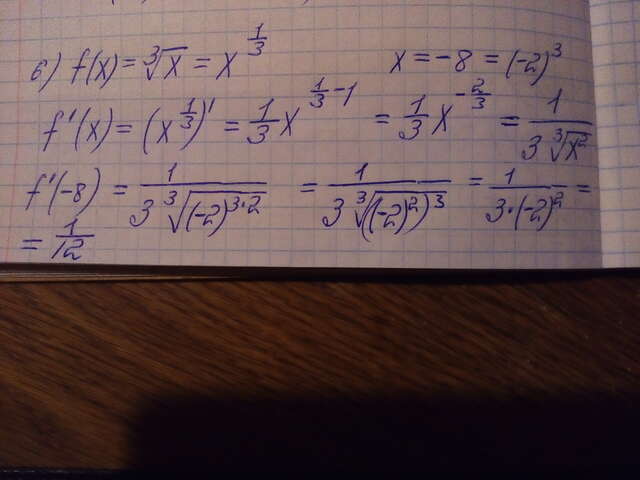 в) f(x) = ∛x = x^{1/3}  x = -8 = (-2)^3
f'(x) = (x^{1/3})' = 1/3 x^{1/3 - 1} = 1/3 x^{-2/3} = 1/(3∛(x^2))
f'(-8) = 1/(3∛((-2)^{3·2})) = 1/(3∛(((-2)^2)^3)) = 1/(3·(-2)^2) =
= 1/12